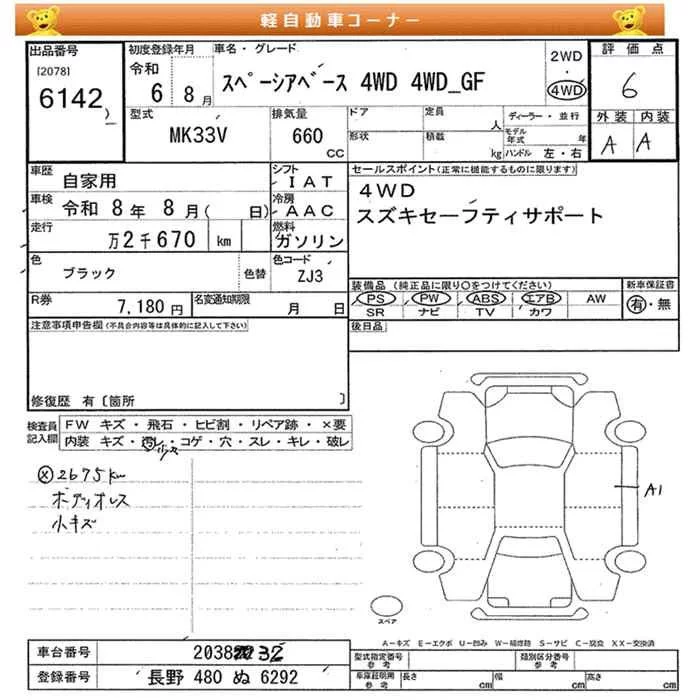 軽自動車コーナー
出品番号 [2078] 6142
初度登録年月 令和 6 8月
車名・グレード スペーシアベース 4WD 4WD_GF
2WD・4WD
評価点 6
外装 A 内装 A
型式 MK33V
排気量 660 CC
ドア 形状
定員 人
積載 kg
ディーラー・並行
モデル年式 年
ハンドル 左・右
車歴 自家用
シフト IAT
車検 令和 8年 8月( 日)
冷房 AAC
走行 万2千670 km
燃料 ガソリン
色 ブラック 色替
色コード ZJ3
R券 7,180円
名変通知期限 月 日
セールスポイント(正常に機能するものに限ります)
4WD
スズキセーフティサポート
装備品 (純正品に限り○をつけてください)
PS PW ABS エアB AW
SR ナビ TV カワ
新車保証書 有・無
後日品
注意事項申告欄(不具合内容等は具体的に記入して下さい)
修復歴 有〔箇所 〕
検査員記入欄
FW キズ・飛石・ヒビ割・リペア跡・×要
内装 キズ・汚レ・コゲ・穴・スレ・キレ・破レ
2675km
小キズ
A1
スペア
A-キズ E-エクボ U-凹み W-補修跡 S-サビ C-腐食 XX-交換済
車台番号 2038
登録番号 長野 480 ぬ 6292
型式指定番号 参考
類別区分番号 参考
車庫証明用 参考 長さ cm 幅 cm 高さ cm